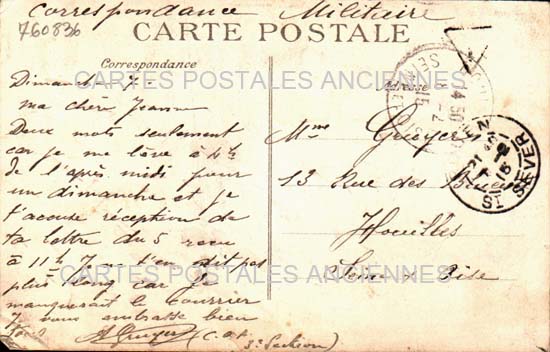 Correspondance Militaire
760836
CARTE POSTALE
Correspondance
Adresse
CARTES POSTALES ANCIENNES
Dimanche 7 -
ma chère Jeanne
Deux mots seulement
car je me lève à 4h
de l'après midi pour
un dimanche et je
t'accuse réception de
ta lettre du 5 reçu
à 11h Je t'en dit pas
plus long car je
manquerait le courrier
Je vous embrasse bien
tous
A Gruyer (C.O.A.
3e Section)
Mme Gruyer
13 Rue des
Houilles
Seine & Oise
CARTES POSTALES ANCIENNES
ST SEVER